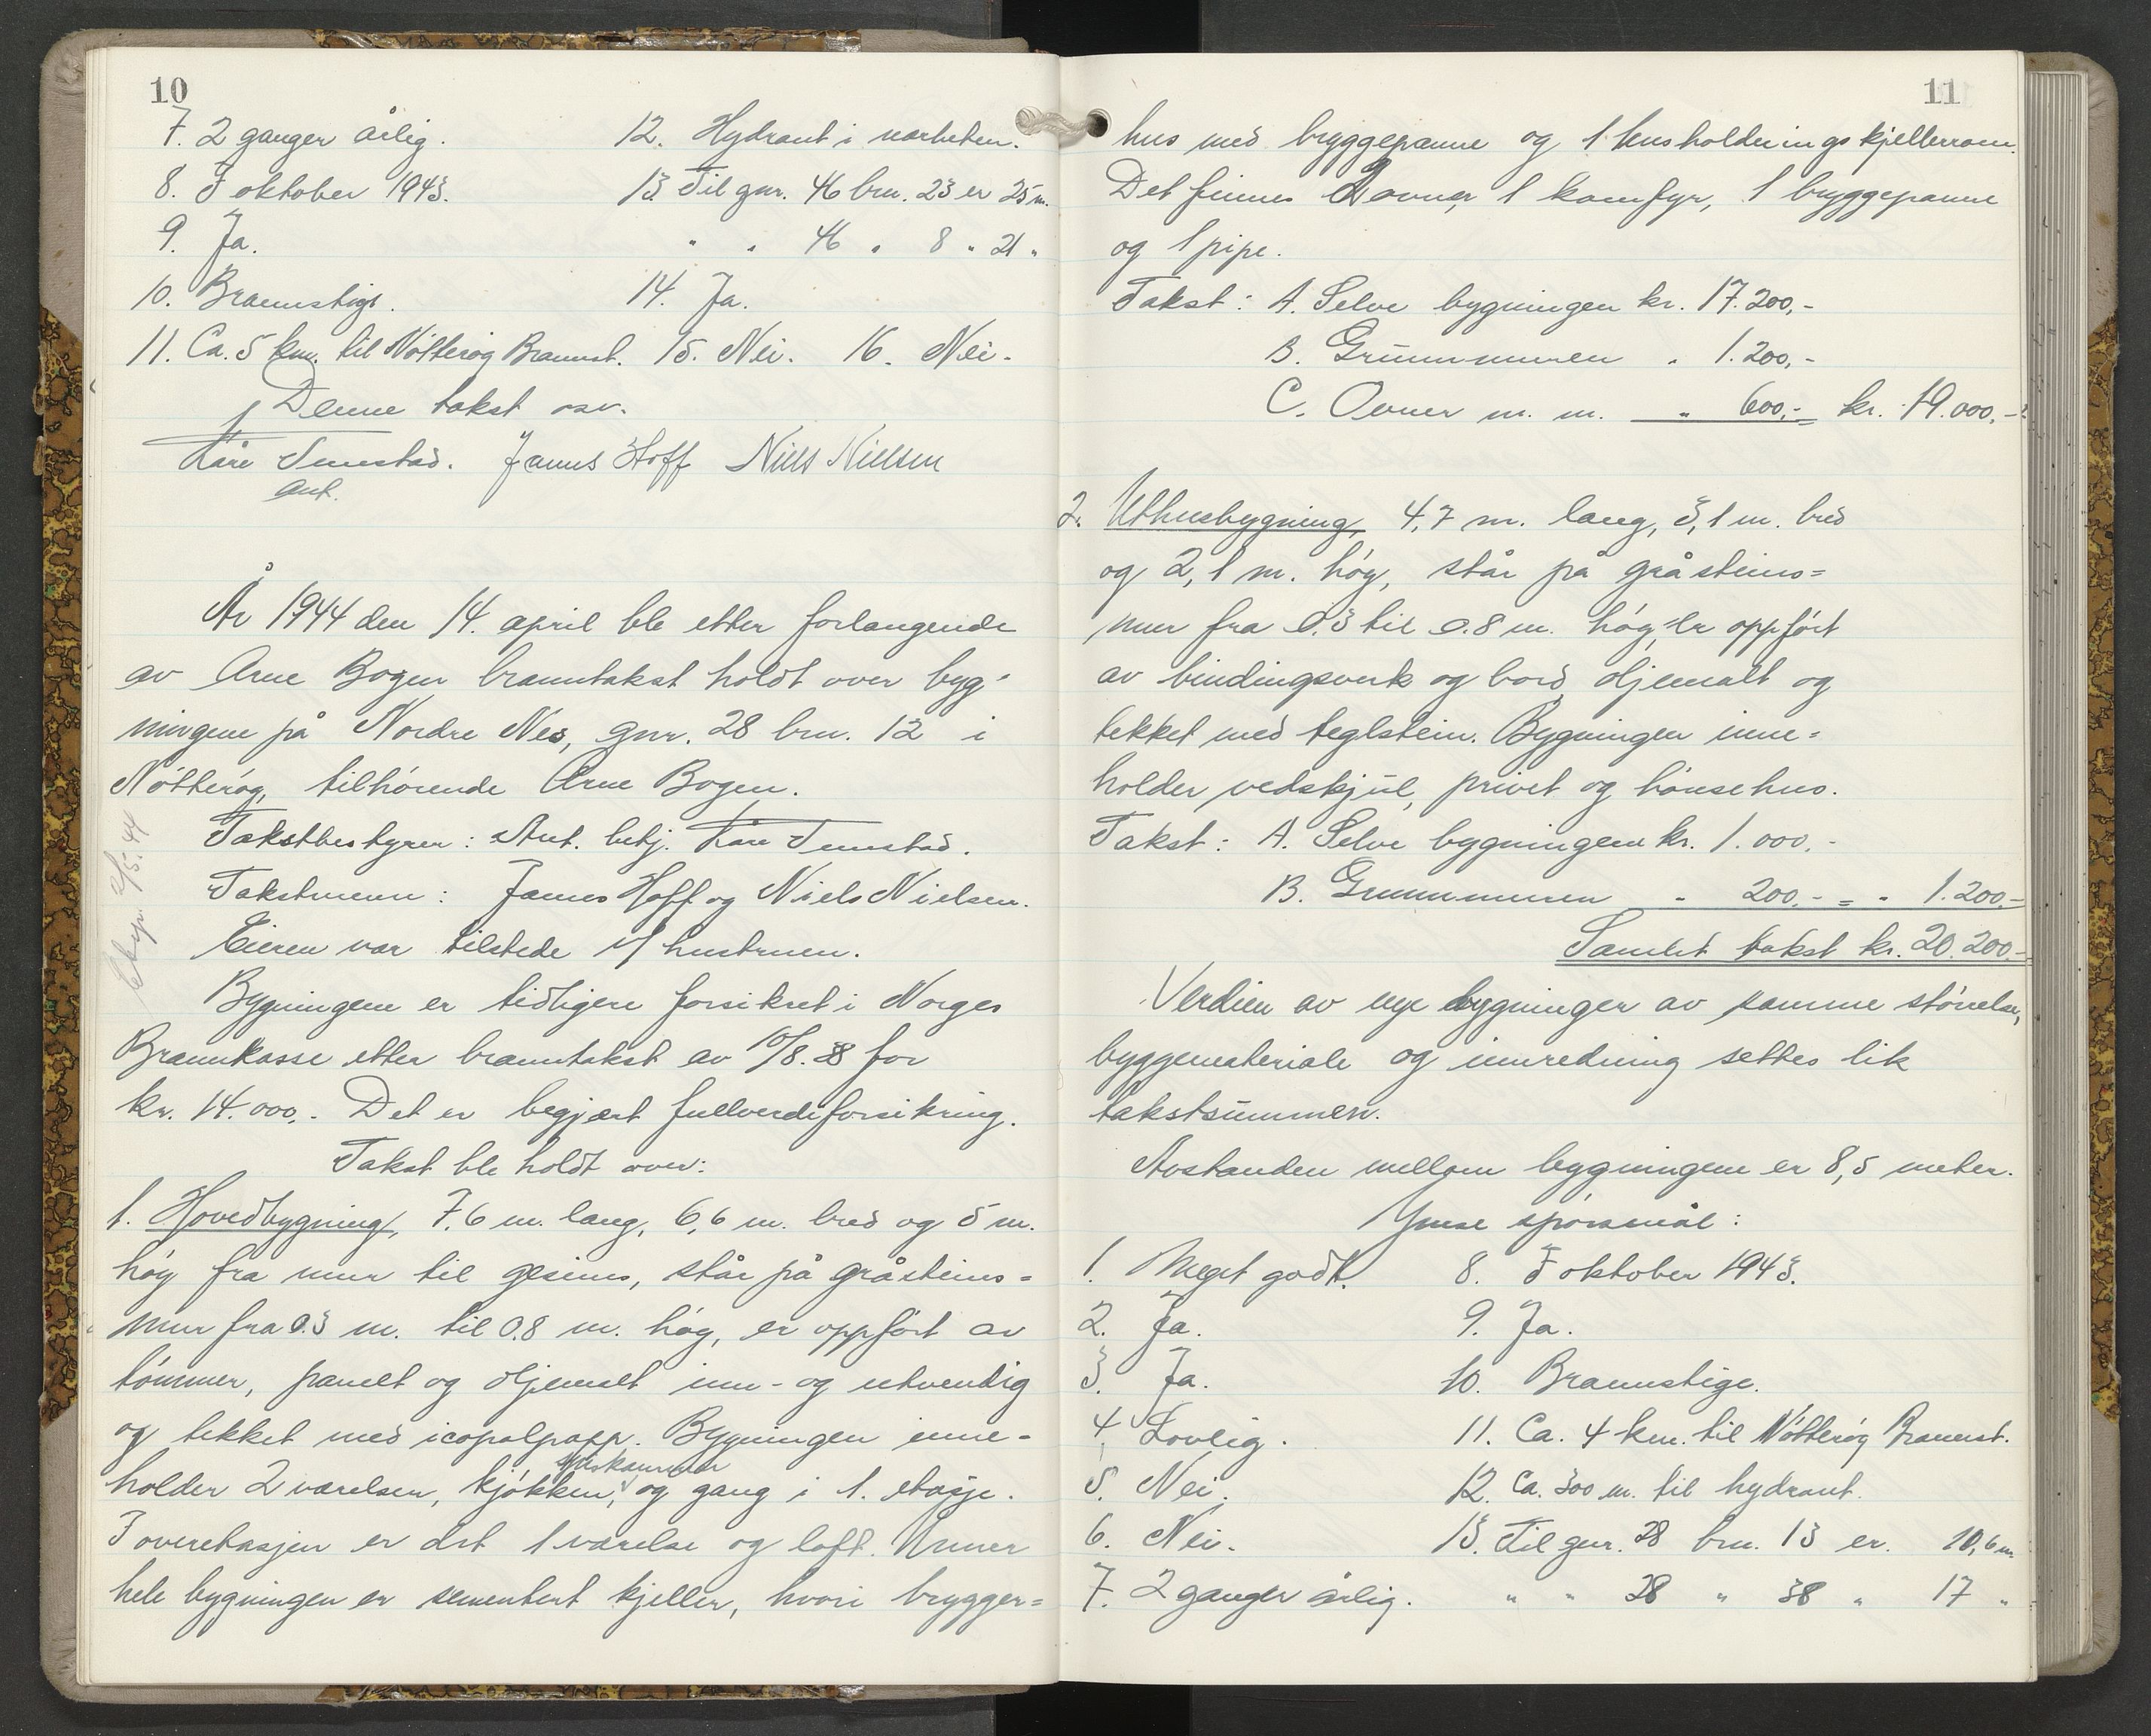 10
7. 2 ganger årlig. 12. Hydrant i nærheten.
8. I oktober 1943. 13. Til gnr. 46 brn. 23 er 25 m.
9. Ja. " " 46 " 8 " 21 "
10. Brannstige. 14. Ja.
11. Ca. 5 km. til Nøtterøy Brannst. 15. Nei. 16. Nei.
Denne takst osv.
Kåre Temstad. James Hoff Niels Nielsen
aut.
År 1944 den 14. april ble etter forlangende
av Arne Bogen branntakst holdt over byg-
ningene på Nordre Nes, gnr. 28 brn. 12 i
Nøtterøy, tilhørende Arne Bogen.
Takstbestyrer: Aut. betj. Kåre Temstad.
Takstmenn: James Hoff og Niels Nielsen.
Eieren var tilstede v/ hustruen.
Bygningene er tidligere forsikret i Norges
Brannkasse etter branntakst av 10/8.38 for
kr. 14.000.- Det er begjært fullverdiforsikring.
Takst ble holdt over:
1. Hovedbygning, 7,6 m. lang, 6,6 m. bred og 5 m.
høy fra mur til gesims, står på gråsteins=
mur fra 0.3 m. til 0.8 m. høy, er oppført av
tømmer, panelt og oljemalt inn- og utvendig
og tekket med icopalpapp. Bygningen inne-
spiskammer
holder 2 værelser, kjøkken, og gang i 1. etasje.
I overetasjen er det 1 værelse og loft. Under
hele bygningen er sementert kjeller, hvori brygger=
Utskr. 2/5.44
11
hus med bryggepanne og 1 husholdningskjellerrom.
Det finnes 2 ovner, 1 komfyr, 1 bryggepanne
og 1 pipe.
Takst: A. Selve bygningen kr. 17.200,-
B. Grunnmuren " 1.200,-
C. Ovner m. m. " 600,- = kr. 19.000,-
2. Uthusbygning, 4,7 m. lang, 3,1 m. bred
og 2,1 m. høy, står på gråsteins=
mur fra 0.3 til 0.8 m. høy, er oppført
av bindingsverk og bord, oljemalt og
tekket med teglstein. Bygningen inne=
holder vedskjul, privet og hønsehus.
Takst: A. Selve bygningene kr. 1.000.-
B. Grunnmuren " 200.- = " 1.200.-
Samlet takst kr. 20.200.-
Verdien av nye bygninger av samme størrelse,
byggemateriale og innredning settes lik
takstsummen.
Avstanden mellom bygningene er 8,5 meter.
Ymse spørsmål:
1. Meget godt. 8. I oktober 1943.
2. Ja. 9. Ja.
3. Ja. 10. Brannstige.
4. Lovlig. 11. Ca. 4 km. til Nøtterøy Brannst.
5. Nei. 12. Ca. 300 m. til hydrant.
6. Nei. 13. Til gnr. 28 brn. 13 er. 10,6 m.
7. 2 ganger årlig. " " 28 " 38 " 17 "